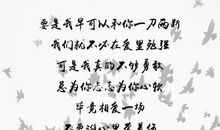 要是我早可以和你一刀两断
我们就不必在爱里勉强
可是我真的不够勇敢
总为你忐忑为你心软
毕竟相爱一场
不要谁心里带着伤